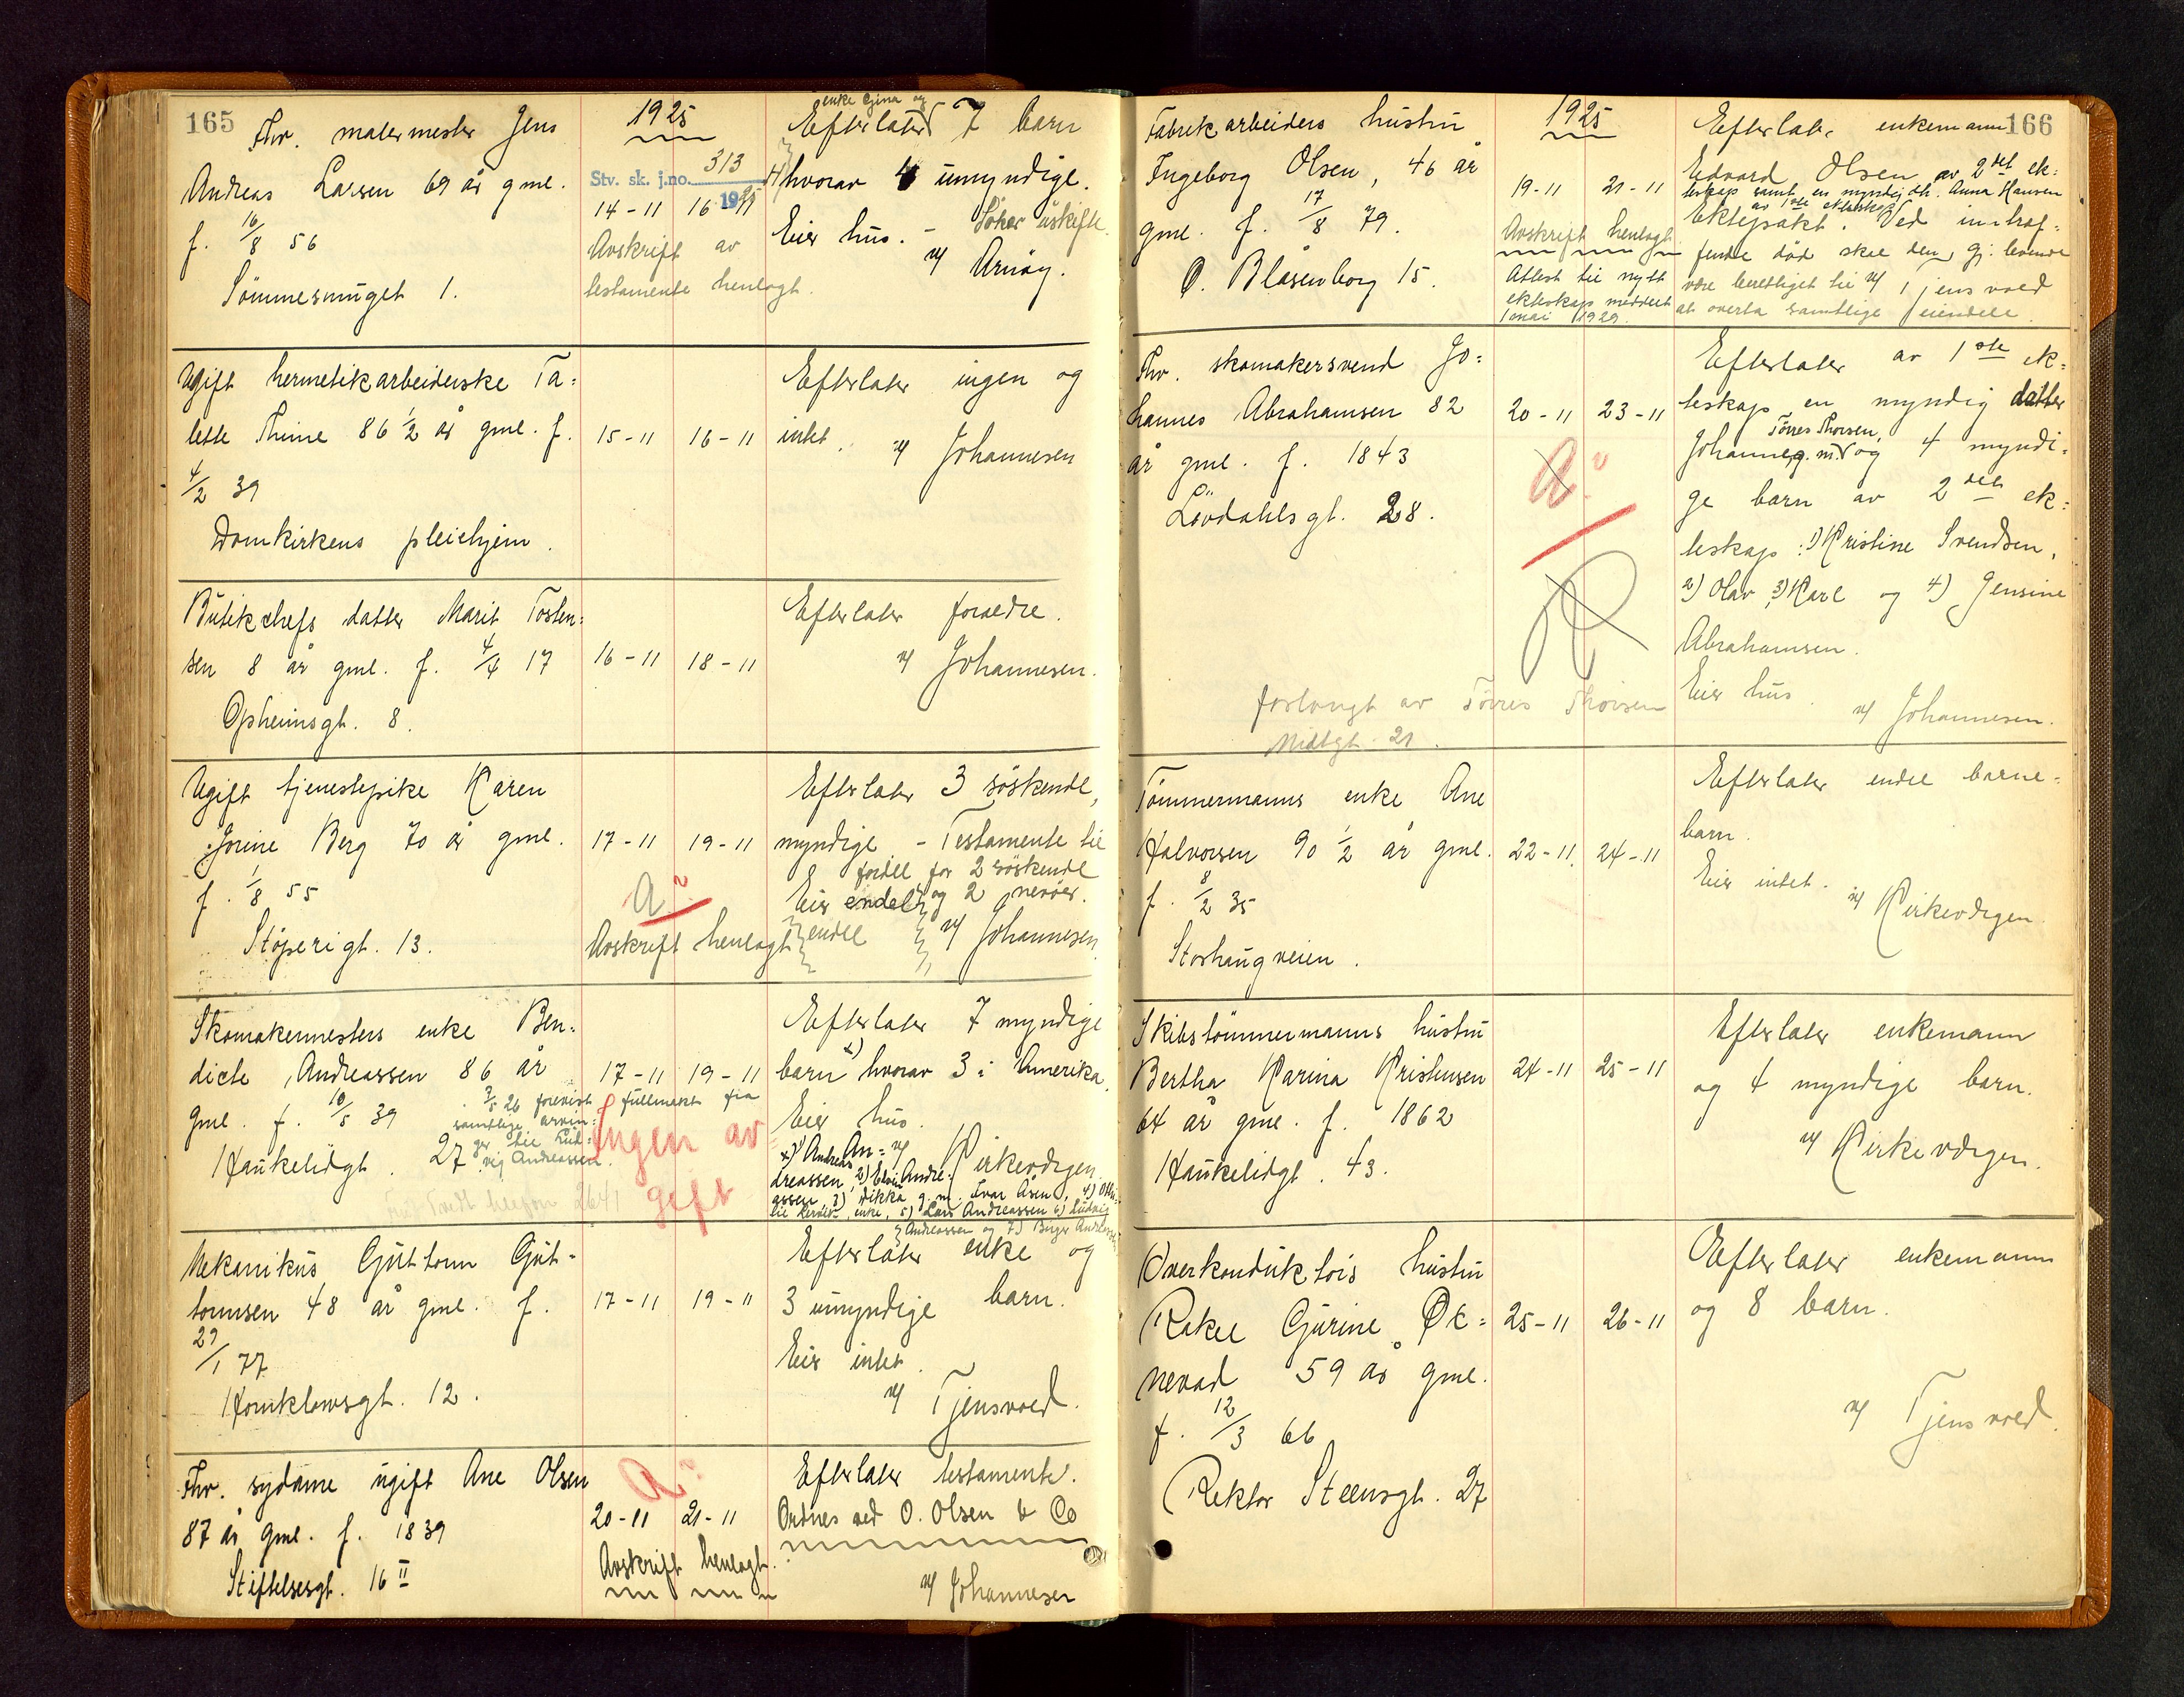 165
Fhv. malermester Jens
Andreas Larsen 69 år gml.
f. 16/8 56
Sömmesmuget 1.
1925
Stv. sk. j.no. 313
1925
14-11 16-11
Avskrift av
testamente henlagt.
enke Gina og
Efterlater 7 barn
hvorav 4 umyndige.
Eier hus. - Söker uskifte.
v/ Arnöy.
Ugift hermetikarbeiderske Ta=
lette Thime 86 1/2 år gml. f.
4/2 39
Domkirkens pleiehjem.
15-11 16-11
Efterlater ingen og
intet.
v/ Johannesen
Butikchefs datter Marit Tosten=
sen 8 år gml. f. 4/4 17
Opheimsgt. 8.
16-11 18-11
Efterlater foraldre.
v/ Johannesen.
Ugift tjenestepike Karen
Jorine Berg 70 år gml.
f. 1/8 55
Stöperigt. 13.
17-11 19-11
a
Avskrift henlagt
Efterlater 3 söskende,
myndige - Testamente til
fordel for 2 söskende
Eier endel og 2 nevöer.
endel v/ Johannesen
Skomakermesters enke Ben=
dicte Andreassen 86 år
gml. f. 10/5 39
Haukeligt. 27
3/5 26 forevist fullmakt fra
samtlige arvin=
ger til Lud=
vig Andreassen.
telefon 2641
17-11 19-11
Ingen av
gift
Efterlater 7 myndige
barn x) hvorav 3 i Amerika.
Eier hus.
v/ Kirkevergen.
x) 1) Andreas An=
dreassen, 2) Edvin Andre=
assen, 3) Dikka g. m. Ivar Åsen, 4)
enke, 5) Lars Andreassen 6) Ludvig
Andreassen og 7) Birger Andreassen
Mekanikus Guttorm Gut-
tormsen 48 år gml. f.
29/1 77
Hornklowsgt. 12.
17-11 19-11
Efterlater enke og
3 umyndige barn.
Eier intet.
v/ Tjensvold.
Fhv. sydame ugift Ane Olsen
87 år gml. f. 1839
Stiftelsesgt. 16 II
a
20-11 21-11
Avskrift henlagt.
Efterlater testamente.
Ordnes ved O. Olsen & Co
v/ Johannesen
166
Fabrikarbeiders hustru
Ingeborg Olsen, 46 år
gml. f. 17/8 79.
Ø. Blåsenborg 15.
1925
19-11 21-11
Avskrift henlagt
Attest til nytt
ekteskap meddelt
1 mai 1929.
Efterlater enkemann
Edvard Olsen av 2det ek=
teskap samt en myndig dt. Anna Hansen
av 1ste ekteskap
Ektepakt. Ved inntraf=
fende död skal den gj. levende
være berettiget til v/ Tjensvold
at overta samtlige eiendele.
Fhv. skomakersvend Jo=
hannes Abrahamsen 82
år gml. f. 1843
Lövdahlsgt. 28.
20-11 23-11
a
forlangt av Törres Thorsen
Nedtgt. 21.
Efterlater av 1ste ek=
teskap en myndig datter
Törres Thorsen,
Johanne, g. m. og 4 myndi=
ge barn av 2det ek=
teskap: 1) Kristine Svendsen,
2) Olav, 3) Karl og 4) Jensine
Abrahamsen.
Eier hus.
v/ Johannesen.
Tömmermanns enke Ane
Halvorsen 90 1/2 år gml.
f. 8/2 35
Storhaugveien.
22-11 24-11
Efterlater endel barne=
barn.
Eier intet.
v/ Kirkevergen
Skibstömmermanns hustru
Bertha Karina Kristensen
64 år gml. f. 1862
Haukeligt. 43.
24-11 25-11
Efterlater enkemann
og 4 myndige barn.
v/ Kirkevergen.
Overkonduktörs hustru
Rakel Gurine Øk=
nevad 59 år gml.
f. 12/3 66
Rektor Steensgt. 27
25-11 26-11
Efterlater enkemann
og 8 barn.
v/ Tjensvold.